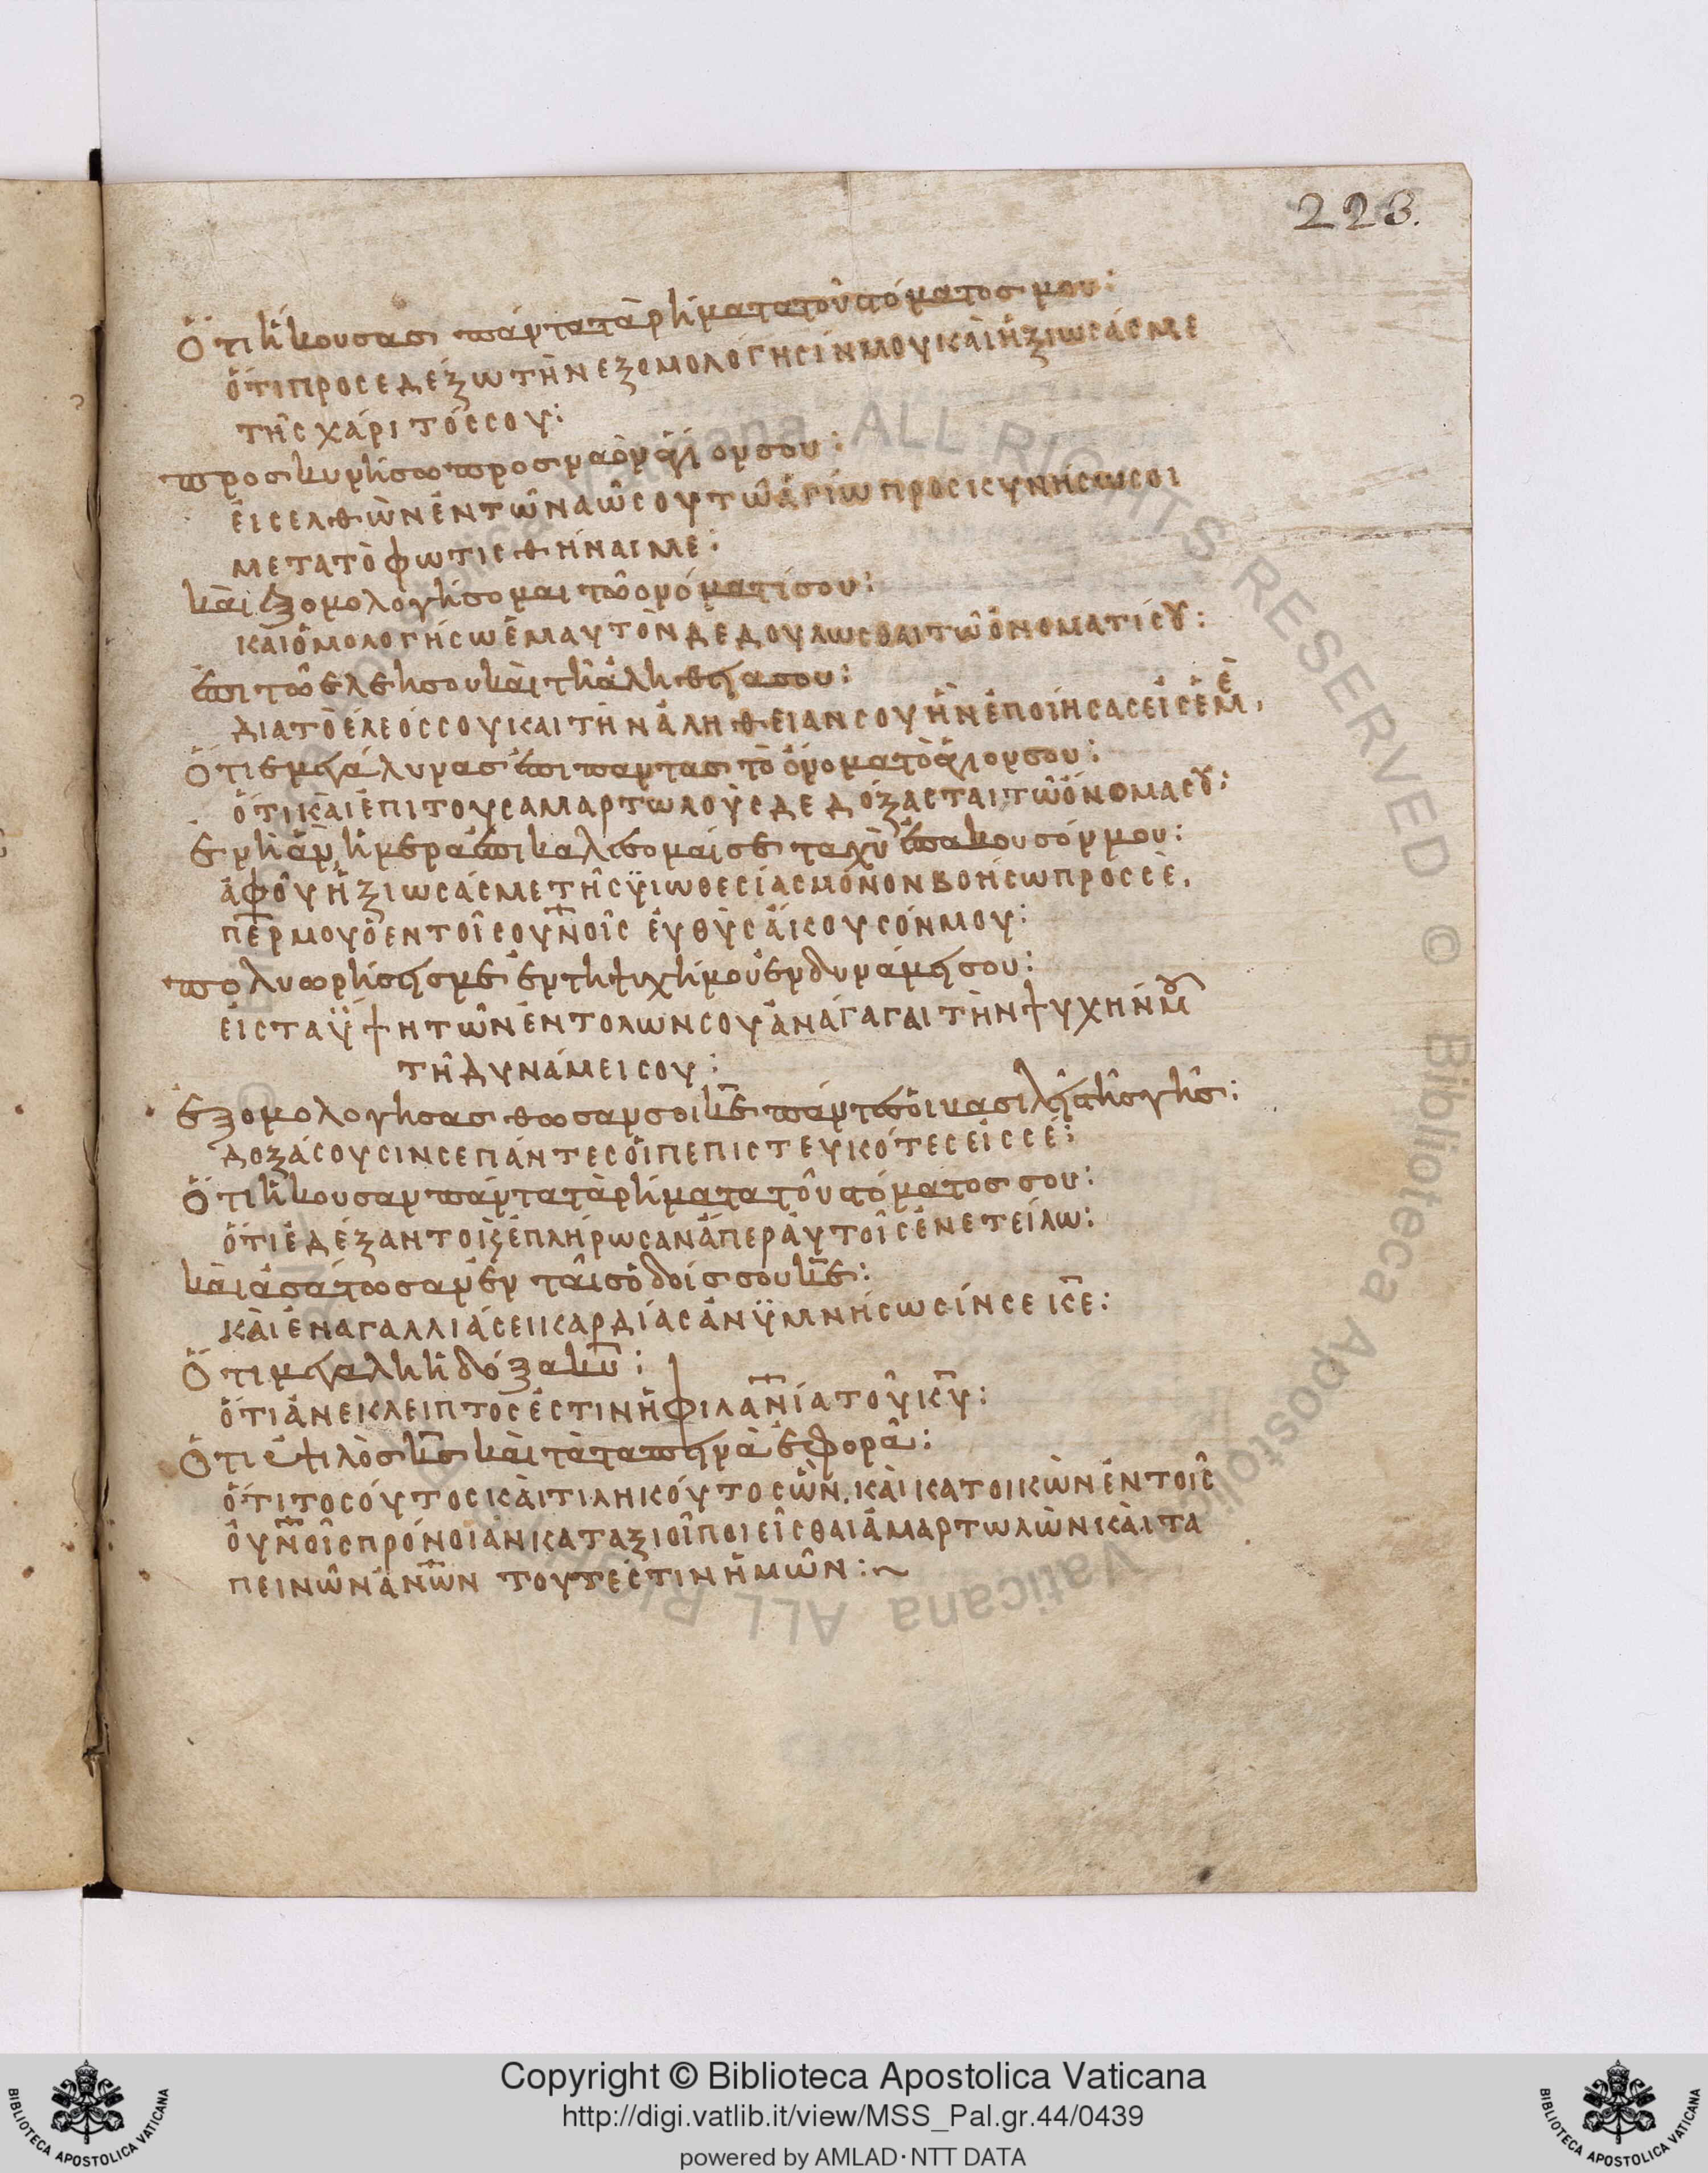 223.
Ὅτι ἤκουσας πάντα τὰ ῥήματα τοῦ στόματος μου:
ὅτι προσεδέξω τὴν ἐξομολόγησίν μου καὶ ἠξίωσάς με
τῆς χάριτός σου:
προσκυνήσω προς ναὸν ἅγιον σου:
εἰσελθὼν ἐν τῶ ναῶ σου τῶ ἁγίω προσκυνήσω σοι
μετα τὸ φωτισθῆναι με:
καὶ ἐξομολογήσομαι τῶ ονόματί σου:
και ὁμολογήσω ἐμαυτὸν δεδουλωσθαι τῶ ὀνοματί σου:
ἐπι τῶ ελεη σου καὶ τῆ ἀληθεια σου:
δια τὸ ἐλεός σου και τὴν ἀλήθειαν σου ἣν ἐποίησας εἰς ἐμέ,
Ὅτι εμεγάλυνας ἐπι παντας τὸ ὄνομα τὸ ἅγιον σου:
ὅτι καὶ ἐπι τους αμαρτωλοὺς δεδόξασται τὼ ὄνομα σου:
εν ἧ ἂν ἡμερα ἐπικαλέσομαί σε ταχὺ ἐπακουσόν μου:
ἀφ οὗ ἠξίωσάς με τῆς υἱωθεσίας μόνον βοήσω πρός σὲ,
περ μου ὁ ἐν τοῖς ουνοῖς εὐθὺς ἄκουσόν μου:
πολυωρήσεις με ἐν τη ψυχή μου ἐν δυνάμει σου:
εἰς τα ὕψη τῶν ἐντολων σου ἀνάγαγαι τὴν ψυχήν μου
τῆ δυνάμει σου:
ἐξομολογησασθωσαν σοι κε πάντες οἱ βασιλεῖς τῆς γῆς:
δοξάσουσιν σε πάντες οἱ πεπιστευκότες εἰς σέ:
Ὅτι ἤκουσαν πάντα τὰ ῥήματα τοῦ στόματος σου:
ὅτι ἐδέξαντο ϗ ἐπλήρωσαν ἅπερ ἀυτοῖς ἐνετείλω:
καὶ ἀσάτωσαν ἐν ταῖς ὁδοίς σου κε:
κὰι ἐν αγαλλιάσει καρδίας ἀνϋμνήσωσίν σε κε:
Ὅτι μεγαλη ἡ δόξα κυ:
ὅτι ἀνεκλειπτος ἐστιν ἡ φιλανία τοῦ κυ:
Ὅτι ὑψιλὸς κς καὶ τὰ ταπεινὰ ἐφορᾶ:
ὅτι τοσούτος κὰι τιληκούτος ὢν, κὰι κατοικὼν ἐν τοις
ουνοῖς πρόνοιαν καταξιοῖ ποιεῖσθαι ἁμαρτωλὼν κὰι τα
πεινῶν ἀνων τουτέστιν ἡμῶν:~
Copyright © Biblioteca Apostolica Vaticana
http://digi.vatlib.it/view/MSS_Pal.gr.44/0439
powered by AMLAD·NTT DATA